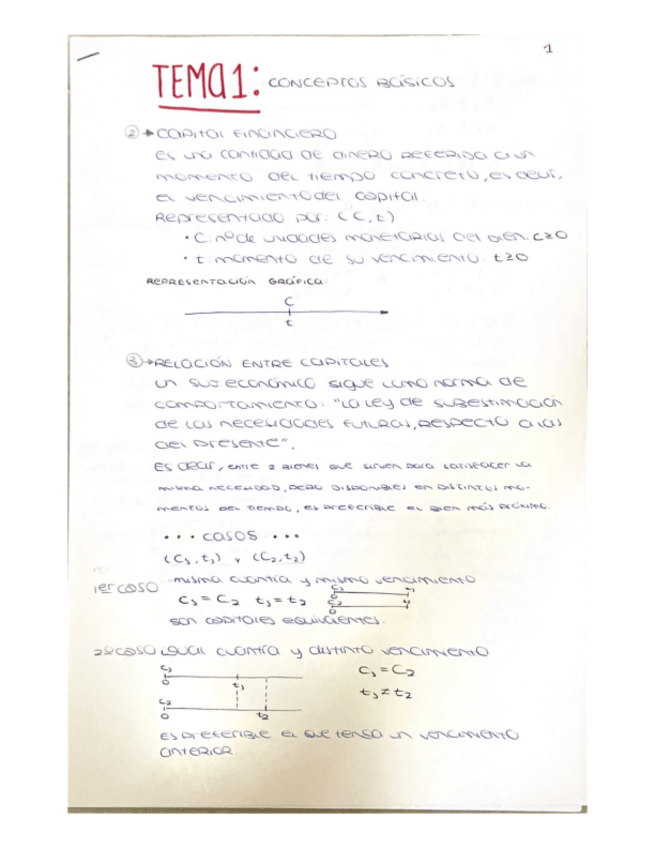 1
TEMA 1: CONCEPTOS BÁSICOS
② → CAPITAL FINANCIERO
ES UNA CANTIDAD DE DINERO REFERIDA A UN
MOMENTO DEL TIEMPO CONCRETO, ES DECIR,
EL VENCIMIENTO DEL CAPITAL.
REPRESENTADO POR: (C, t)
· C: nº DE UNIDADES MONETARIAS DEL BIEN. C≥0
· t: MOMENTO DE SU VENCIMIENTO. t≥0
REPRESENTACIÓN GRÁFICA:
C
t
③ → RELACIÓN ENTRE CAPITALES
UN SUJ. ECONÓMICO SIGUE COMO NORMA DE
COMPORTAMIENTO: "LA LEY DE SUBESTIMACIÓN
DE LAS NECESIDADES FUTURAS, RESPECTO A LAS
DEL PRESENTE".
ES DECIR, ENTRE 2 BIENES QUE SIRVEN PARA SATISFACER LA
MISMA NECESIDAD, PERO DISPONIBLES EN DISTINTOS MO-
MENTOS DEL TIEMPO, ES PREFERIBLE EL BIEN MÁS PRÓXIMO.
... CASOS ...
(C₁, t₁) y (C₂, t₂)
1er CASO · MISMA CUANTÍA Y MISMO VENCIMIENTO
C₁ = C₂ t₁ = t₂
C₁ 0 t₁
C₂ 0 t₂
SON CAPITALES EQUIVALENTES.
2º CASO IGUAL CUANTÍA Y DISTINTO VENCIMIENTO
C₁ 0 t₁
C₁ = C₂
t₁ ≠ t₂
C₂ 0 t₂
ES PREFERIBLE EL QUE TENGA UN VENCIMIENTO
ANTERIOR.